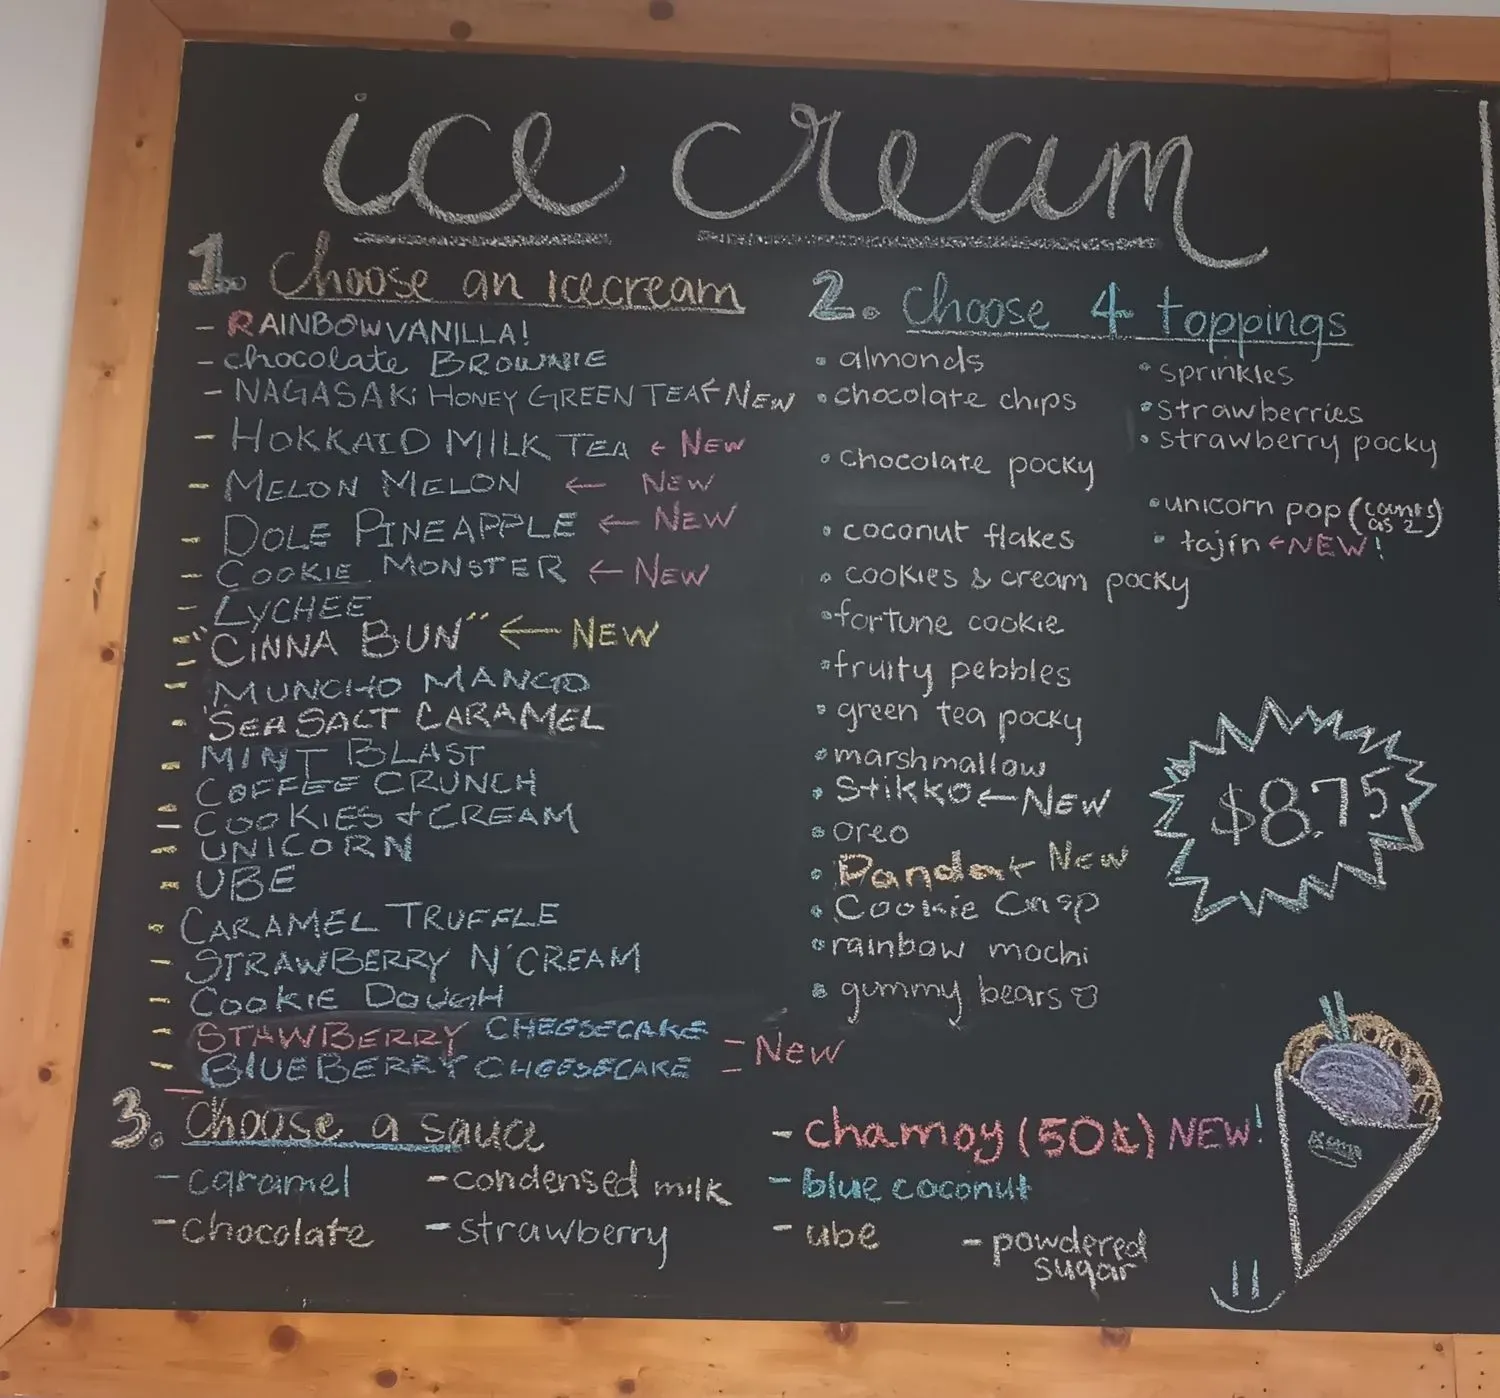 ice cream
1. Choose an icecream
- RAINBOW VANILLA!
- chocolate BROWNIE
- NAGASAKI HONEY GREEN TEA ← NEW
- HOKKAIDO MILK TEA ← NEW
- MELON MELON ← NEW
- DOLE PINEAPPLE ← NEW
- COOKIE MONSTER ← NEW
- LYCHEE
- "CINNA BUN" ← NEW
- MUNCHO MANGO
- SEA SALT CARAMEL
- MINT BLAST
- COFFEE CRUNCH
- COOKIES + CREAM
- UNICORN
- UBE
- CARAMEL TRUFFLE
- STRAWBERRY N' CREAM
- COOKIE DOUGH
- STAWBERRY CHEESECAKE
- BLUEBERRY CHEESECAKE
= New
2. Choose 4 toppings
• almonds
• chocolate chips
• chocolate pocky
• coconut flakes
• cookies & cream pocky
• fortune cookie
• fruity pebbles
• green tea pocky
• marshmallow
• Stikko ← NEW
• oreo
• Panda ← NEW
• Cookie Crisp
• rainbow mochi
• gummy bears ♡
• sprinkles
• strawberries
• strawberry pocky
• unicorn pop (counts as 2)
• tajín ← NEW!
$8.75
3. Choose a sauce
- caramel
- chocolate
- condensed milk
- strawberry
- chamoy (50¢) NEW!
- blue coconut
- ube
- powdered
sugar